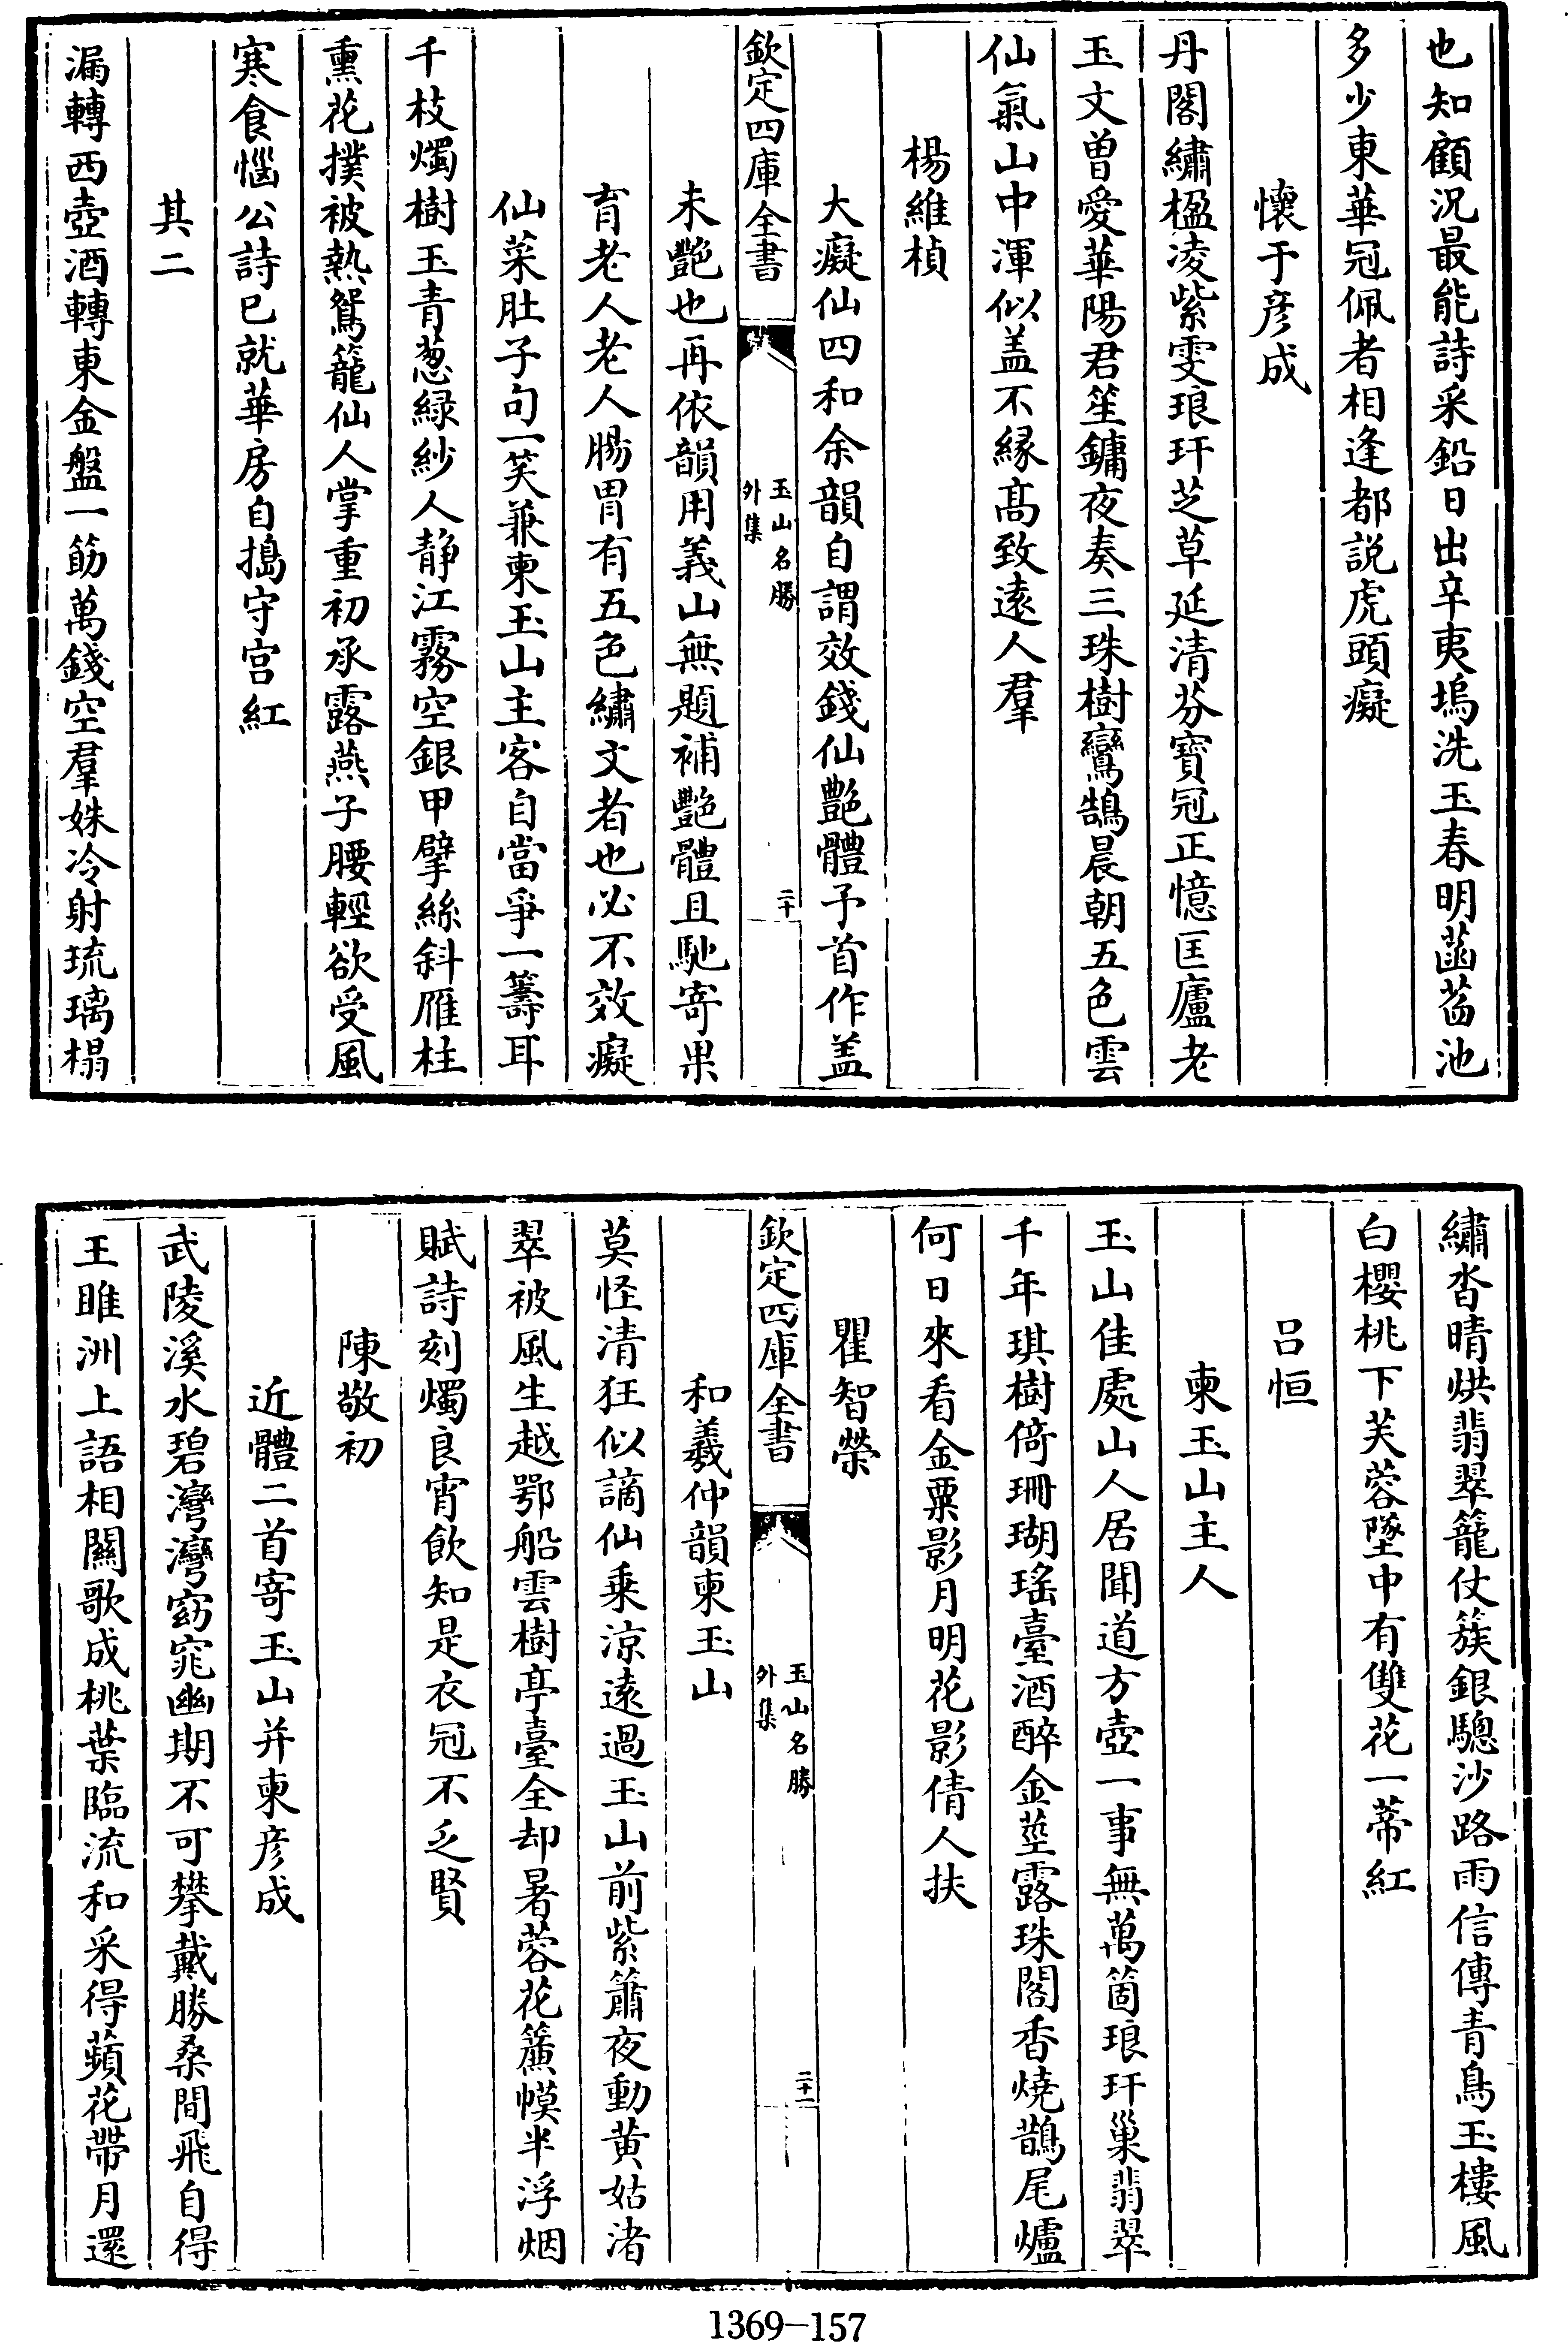 也知顧況最能詩采鉛日出辛夷塢洗玉春明菡萏池
多少東華冠佩者相逢都説虎頭癡
懷于彦成
丹閣繡楹凌紫雯琅玕芝草延清芬寶冠正憶匡廬老
玉文曽愛華陽君笙鏞夜奏三珠樹鸞鵠晨朝五色雲
仙氣山中渾似盖不緣髙致逺人羣
楊維楨
大癡仙四和余韻自謂效錢仙艷體予首作盖
欽定四庫全書
玉山名勝
外集
二十
未艷也再依韻用義山無題補艷體且馳寄果
育老人老人腸胃有五色繡文者也必不效癡
仙菜肚子句一笑兼柬玉山主客自當爭一籌耳
千枝燭樹玉青葱緑紗人静江霧空銀甲擘絲斜雁柱
熏花撲被熱鴛籠仙人掌重初承露燕子腰輕欲受風
寒食惱公詩已就華房自搗守宫紅
其二
漏轉西壺酒轉東金盤一筯萬錢空羣姝冷射琉璃榻
繡沓晴烘翡翠籠仗簇銀驄沙路雨信傳青鳥玉樓風
白櫻桃下芙蓉墜中有雙花一蒂紅
吕恒
柬玉山主人
玉山佳處山人居聞道方壺一事無萬箇琅玕巢翡翠
千年琪樹倚珊瑚瑤臺酒醉金莖露珠閣香燒鵲尾爐
何日來看金粟影月明花影倩人扶
瞿智榮
欽定四庫全書
玉山名勝
外集
二十一
和羲仲韻柬玉山
莫怪清狂似謫仙乗涼逺過玉山前紫簫夜動黄姑渚
翠被風生越鄂船雲樹亭臺全却暑蓉花簾幙半浮烟
賦詩刻燭良宵飲知是衣冠不乏賢
陳敬初
近體二首寄玉山并柬彦成
武陵溪水碧灣灣窈窕幽期不可攀戴勝桑間飛自得
王雎洲上語相闗歌成桃葉臨流和采得蘋花帶月還
1369-157